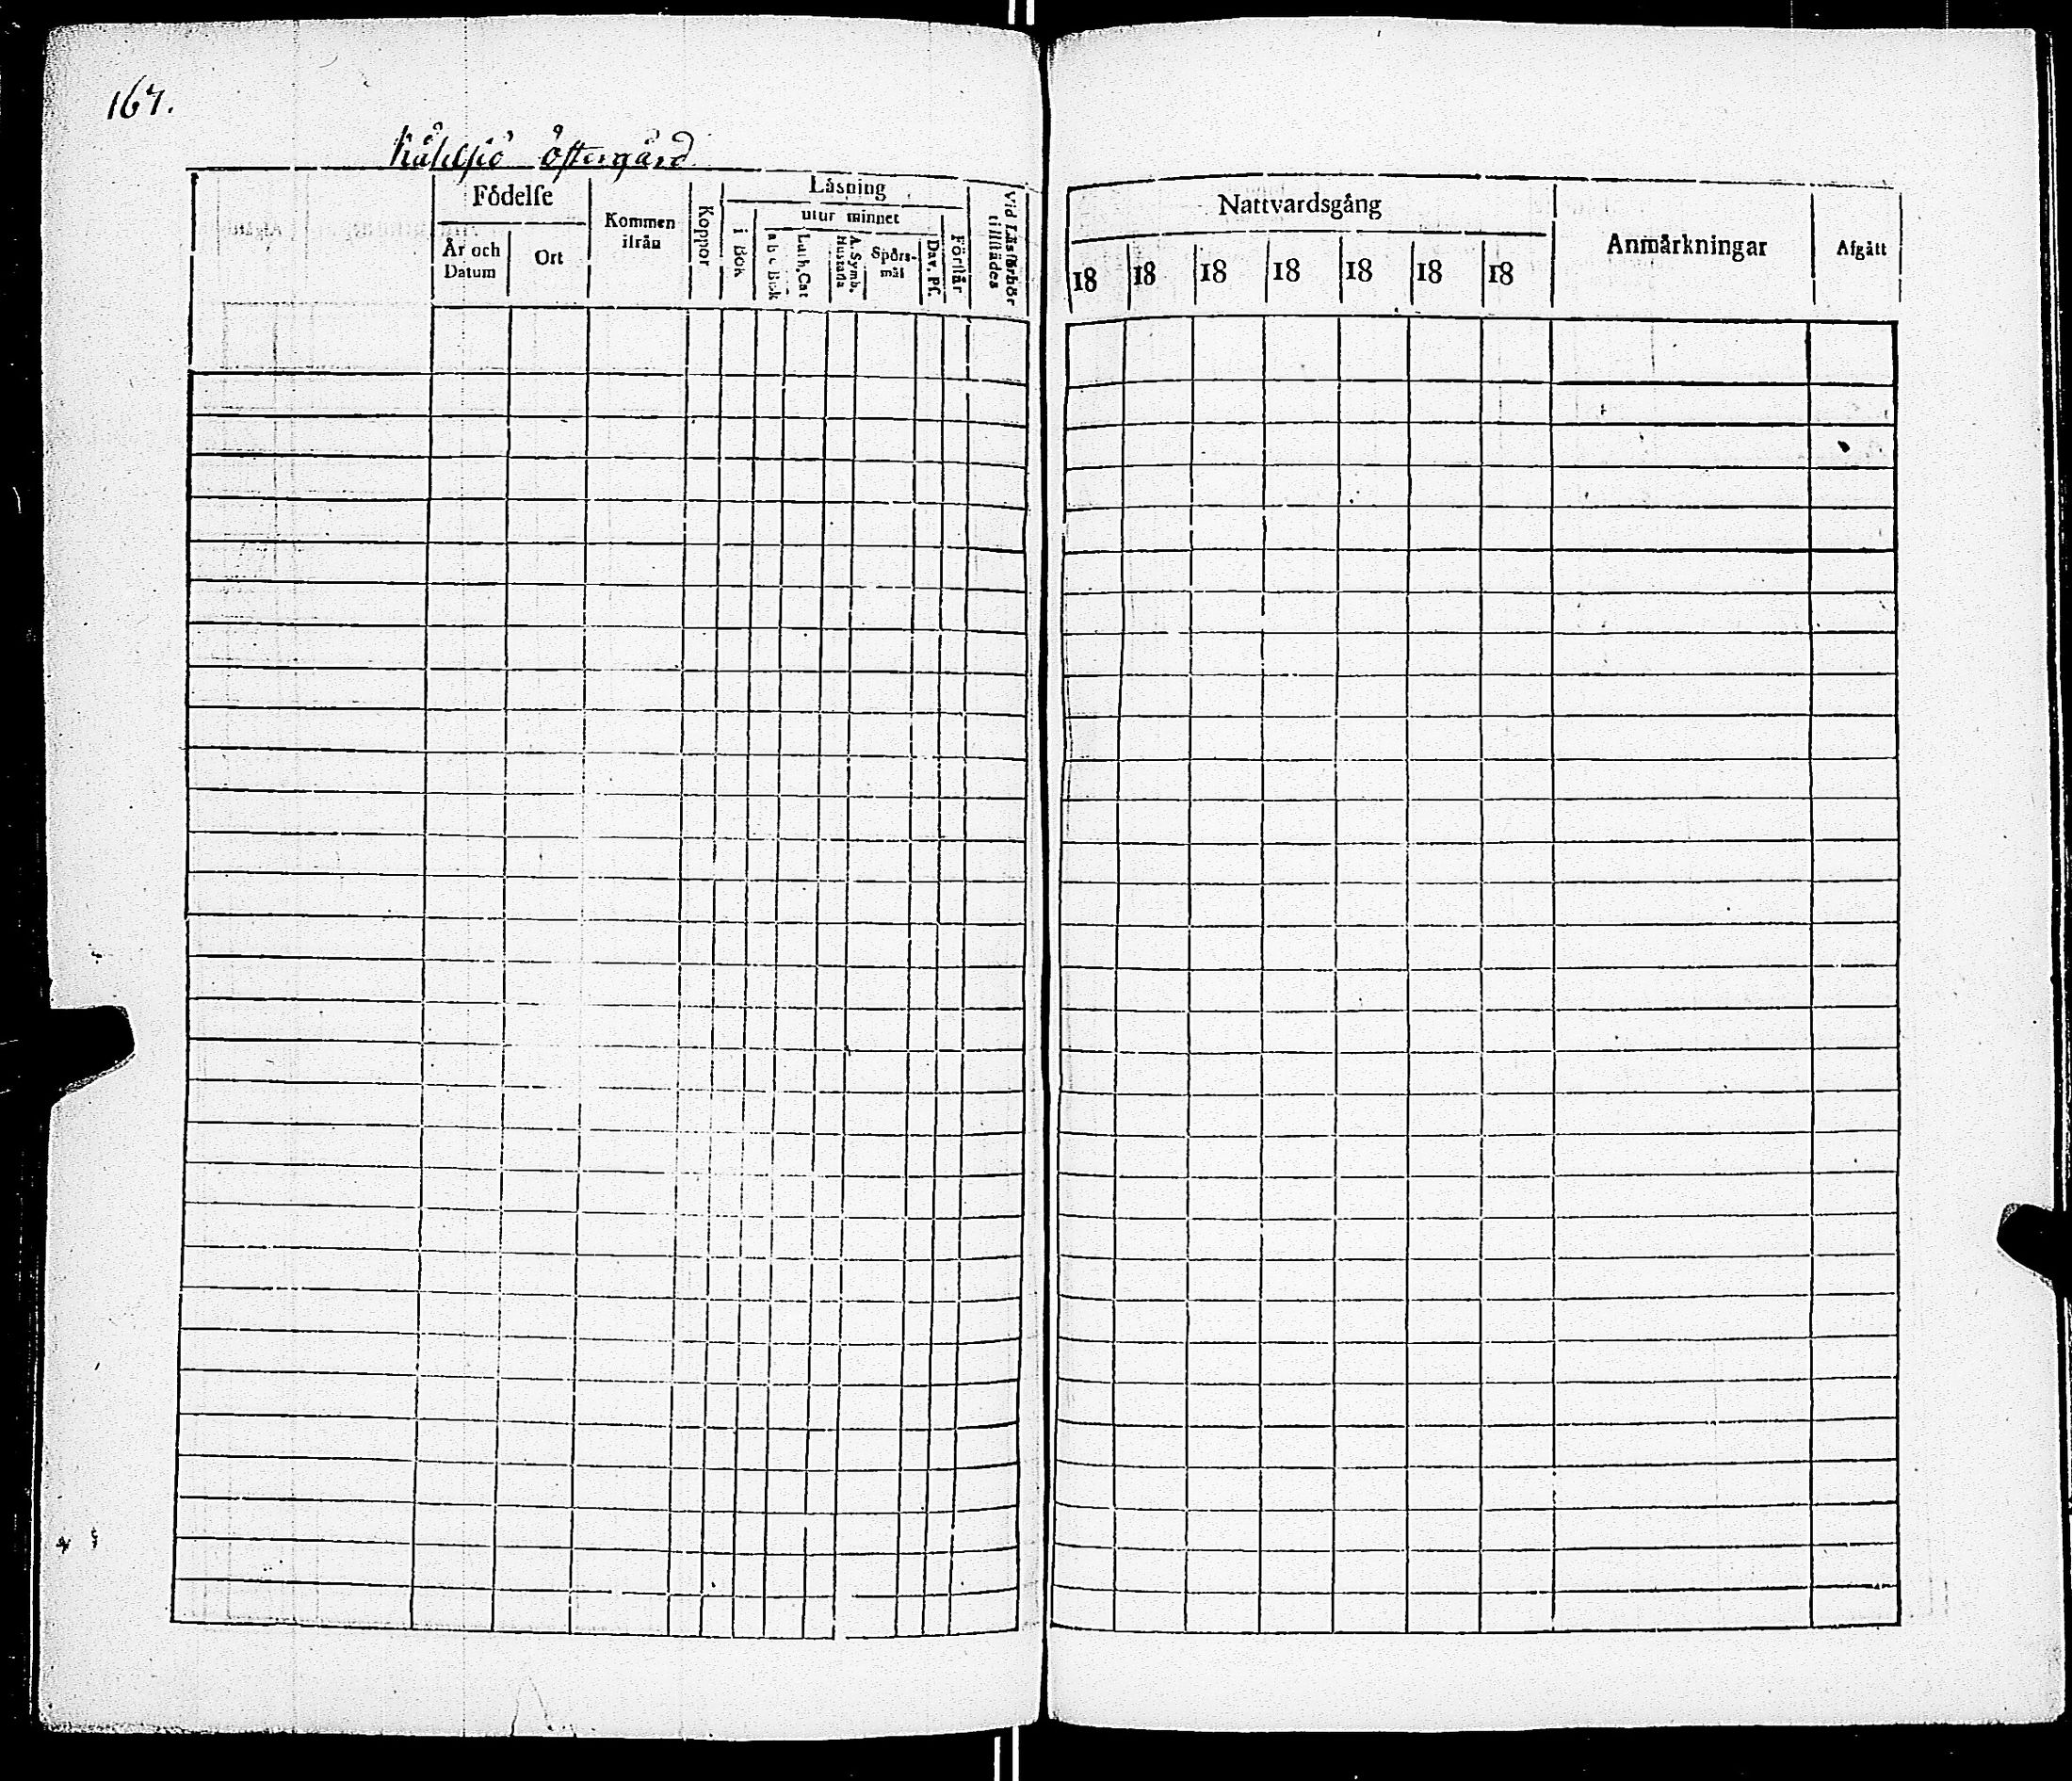 167.
östergård
Födelse
År och Datum
Ort
Kommen ifrån
Koppor
Läsning
i Bok
utur minnet
a b c Bok
Luth. Cat
A. Symb. Hustafla
Spörs-mål
Dav. Ps.
Förstår
Vid Läsförhör tillstädes
Nattvardsgång
18 18 18 18 18 18 18
Anmärkningar
Afgått